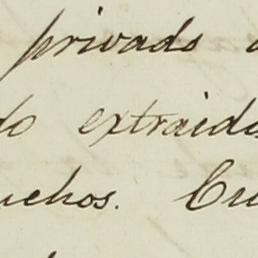 privado
extraida
uchos. Cu